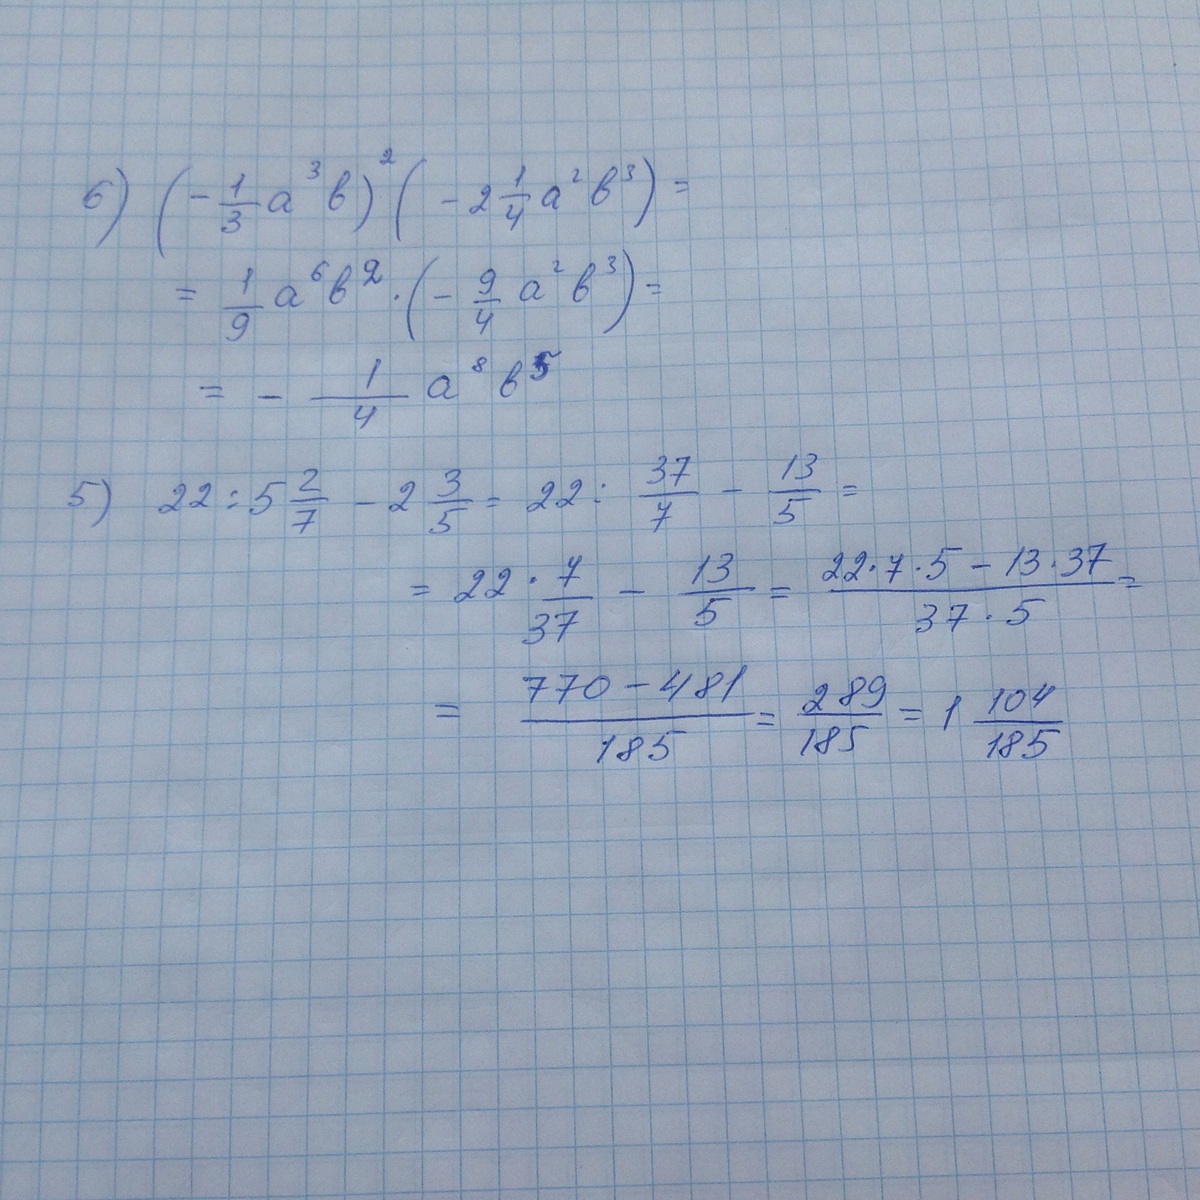 б) (-1/3 a³b)² (-2 1/4 a²b³) =
= 1/9 a⁶b² · (-9/4 a²b³) =
= - 1/4 a⁸b⁵
5) 22 : 5 2/7 - 2 3/5 = 22 : 37/7 - 13/5 =
= 22 · 7/37 - 13/5 = (22·7·5 - 13·37)/(37·5) =
= (770 - 481)/185 = 289/185 = 1 104/185